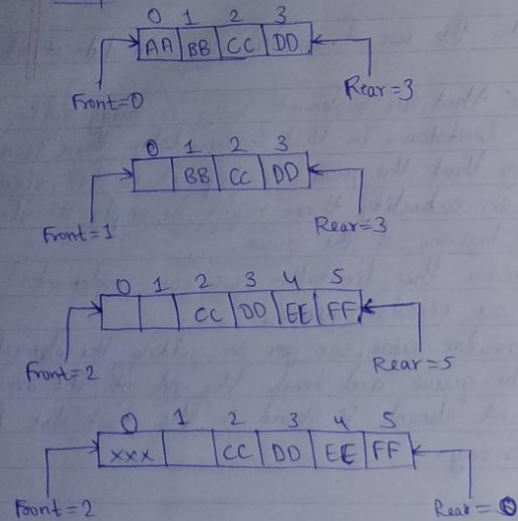 0 1 2 3
AA BB CC DD
Front=0 Rear=3
0 1 2 3
BB CC DD
Front=1 Rear=3
0 1 2 3 4 5
CC DD EE FF
Front=2 Rear=5
0 1 2 3 4 5
xxx CC DD EE FF
Front=2 Rear=0